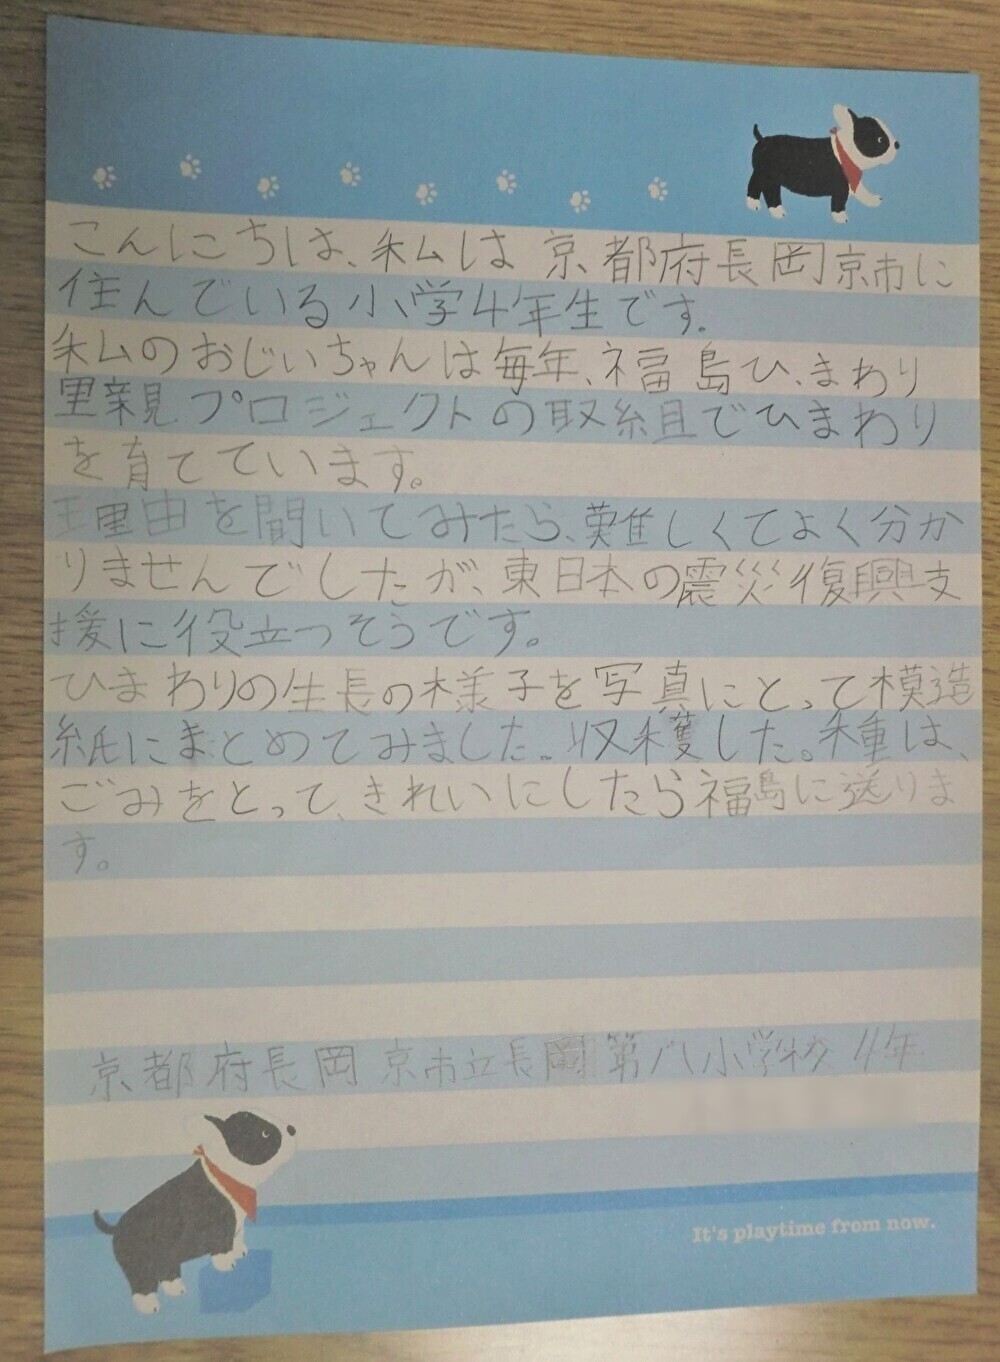 こんにちは、私は京都府長岡京市に
住んでいる小学4年生です。
私のおじいちゃんは毎年、福島ひまわり
里親プロジェクトの取組でひまわり
を育てています。
理由を聞いてみたら、難しくてよく分か
りませんでしたが、東日本の震災復興支
援に役立つそうです。
ひまわりの生長の様子を写真にとって模造
紙にまとめてみました。収穫した。種は、
ごみをとって、きれいにしたら福島に送りま
す。
京都府長岡京市立長岡第八小学校 4年
It's playtime from now.